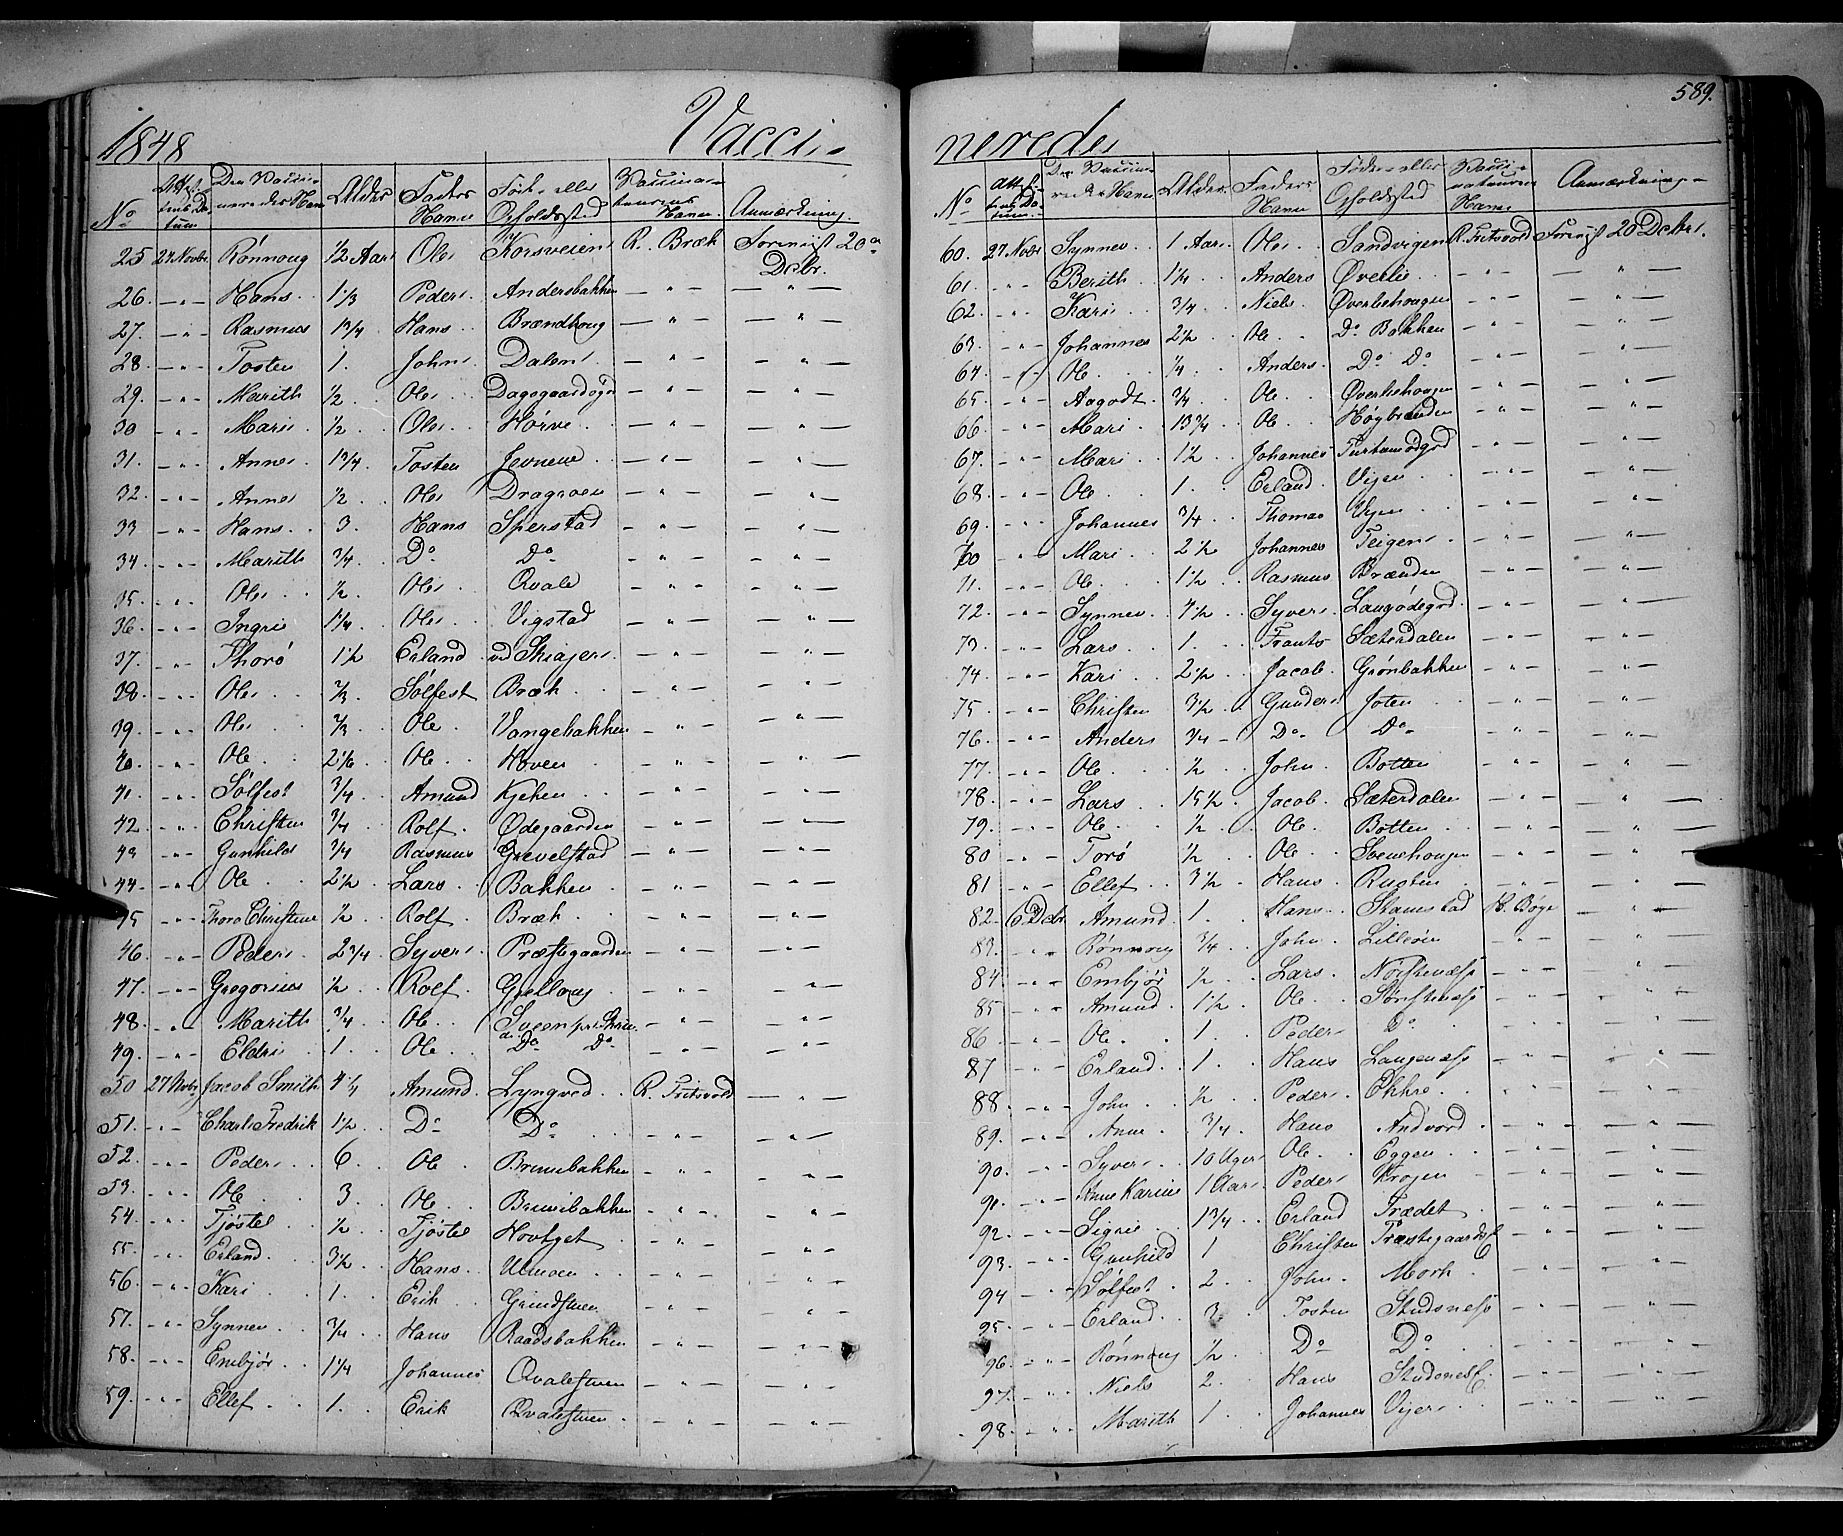 589.
1848 Vacci-
No Attestens Datum Den Vaccineredes Navn Alder Faders Navn Føde- eller Opholdssted Vaccinateurens Navn Anmærkning.
25 27 Novbr. Rønnoug 1/2 Aar Ole Korsveien R. Bræk Foreviist 20de Decbr.
26. -"- Hans 1 1/3 Peder Andersbakken -"- -"-
27. -"- Rasmus 1 3/4 Hans Brændhoug -"- -"-
28. -"- Tosten 1. John Dalen -"- -"-
29. -"- Marith 1/2 Ole -"- -"-
30 -"- Mari 1/2 Ole Hørve -"- -"-
31. -"- Anne 1 3/4 Tosten Jevnene -"- -"-
32. -"- Anne 1/2 Ole Dragroen -"- -"-
33 -"- Hans 3. Hans Sperstad -"- -"-
34. -"- Marith 3/4 Do Do -"- -"-
35. -"- Ole 1/2. Ole Qvale -"- -"-
36. -"- Ingri 1 1/4 Ole Vigstad -"- -"-
37. -"- Thorø 1 1/2 Erland ved Skiager -"- -"-
38. -"- Ole 2/3 Sølfest Bræk -"- -"-
39. -"- Ole 2/3 Ole Vangebakken -"- -"-
40. -"- Ole 2 1/6 Ole Hoven -"- -"-
41. -"- Sølfest 3/4 Amund Kjeken -"- -"-
42. -"- Christen 3/4 Rolf Ødegaarden -"- -"-
43 -"- Gunhild 3/4 Rasmus Grevelstad -"- -"-
44. -"- Ole 2 1/2 Lars Bakken -"- -"-
45 -"- Thora Christine 1/2 Rolf Bræk -"- -"-
46. -"- Peder 2 3/4 Syver Præstegaarden -"- -"-
47. -"- Gregorius 1/2 Rolf -"- -"-
48. -"- Marith 3/4 Ole Sveen -"- -"-
49. -"- Eldri 1. Ole Do Do -"- -"-
50 27 Novbr Jacob Smith 4 1/2 Amund Lyngved R. Fritsvold -"-
51. -"- Charls Fredrik 1 1/2 Do Do -"-
52. -"- Peder 6 Ole Bruubakken -"- -"-
53. -"- Ole 3 Ole Bruubakken -"- -"-
54. -"- Tjøstel 1/2 Tjøstel -"- -"-
55. -"- Erland 3 1/2 Hans Ulmoen -"- -"-
56. -"- Kari 1. Erik -"- -"-
57. -"- Synnev 3/4 Hans Raadsbakken -"- -"-
58. -"- Embjør 1 1/4 Johannes Qvalestuen -"- -"-
59. -"- Ellef 1. Erik Qvalestuen -"- -"-
nerede
No Attestens Datum Den Vaccineredes Navn Alder Faders Navn Føde- eller Opholdssted Vaccinateurens Navn Anmærkning
60. 27 Novbr Synnev 1 Aar Ole Sandvigen R. Fritsvold Foreviist 20 Decbr.
61. -"- Berith 1 1/4 Anders Øverlie -"- -"-
62. -"- Kari 3/4 Niels Øverliehougen -"- -"-
63. -"- Johannes 2 1/2 Ole Do Bakken -"- -"-
64. -"- Ole 1/4 Anders Do Do -"- -"-
65. -"- Aagodt 3/4 Ole Øverliehougen -"- -"-
66. -"- Mari 13 3/4 Ole Høybrenden -"- -"-
67. -"- Mari 1 1/2 Johannes -"- -"-
68. -"- Ole 1. Erland Vigen -"- -"-
69. -"- Johannes 3/4 Thomas -"- -"-
70 -"- Mari 2 1/2 Johannes Teigen -"- -"-
71. -"- Ole 1 1/2 Rasmus Brænden -"- -"-
72. -"- Synnev 4 1/2 Syver Langødegrd. -"- -"-
73. -"- Lars 1. Frants Sæterdalen -"- -"-
74. -"- Kari 2 1/2 Jacob Grønbakken -"- -"-
75. -"- Christen 3 1/2 Gunder Joten -"- -"-
76. -"- Anders 3/4 Do Do -"- -"-
77. -"- Ole 1/2 John Botten -"- -"-
78. -"- Lars 15 1/2 Jacob Sæterdalen -"- -"-
79. -"- Ole 1/2 Ole Botten -"- -"-
80 -"- Torø 1/2 Ole Svenehougen -"- -"-
81 -"- Ellef 3 1/2 Hans Rusten -"- -"-
82. 6 Decbr Amund 1. Hans Skamstad H. Bøye -"-
83. -"- Rønnoug 3/4 John Lilleøien -"- -"-
84 -"- Embjør 1/2 Lars Nørstenæss -"- -"-
85 -"- Amund 1 1/2 Ole Sørstenæss -"- -"-
86 -"- Ole 1. Peder Do -"- -"-
87 -"- Erland 1 Hans Langenæss -"- -"-
88. -"- John 1/2 Peder Ekkre -"- -"-
89. -"- Anne 3/4 Hans Andvord -"- -"-
90. -"- Syver 10 Uger Ole Eggen -"- -"-
91. -"- Anne Karine 1 Aar Peder Krogen -"- -"-
92. -"- Sigri 1 3/4 Erland Trædet -"- -"-
93. -"- Gunhild 1 Christen -"- -"-
94 -"- Sølfest 2. John Mork -"- -"-
95. -"- Erland 3 Tosten Studsness -"- -"-
96. -"- Rønnoug 1/2 Do Do -"- -"-
97. -"- Niels 2. Hans Studsness -"- -"-
98. -"- Marith 1. Johannes -"- -"-